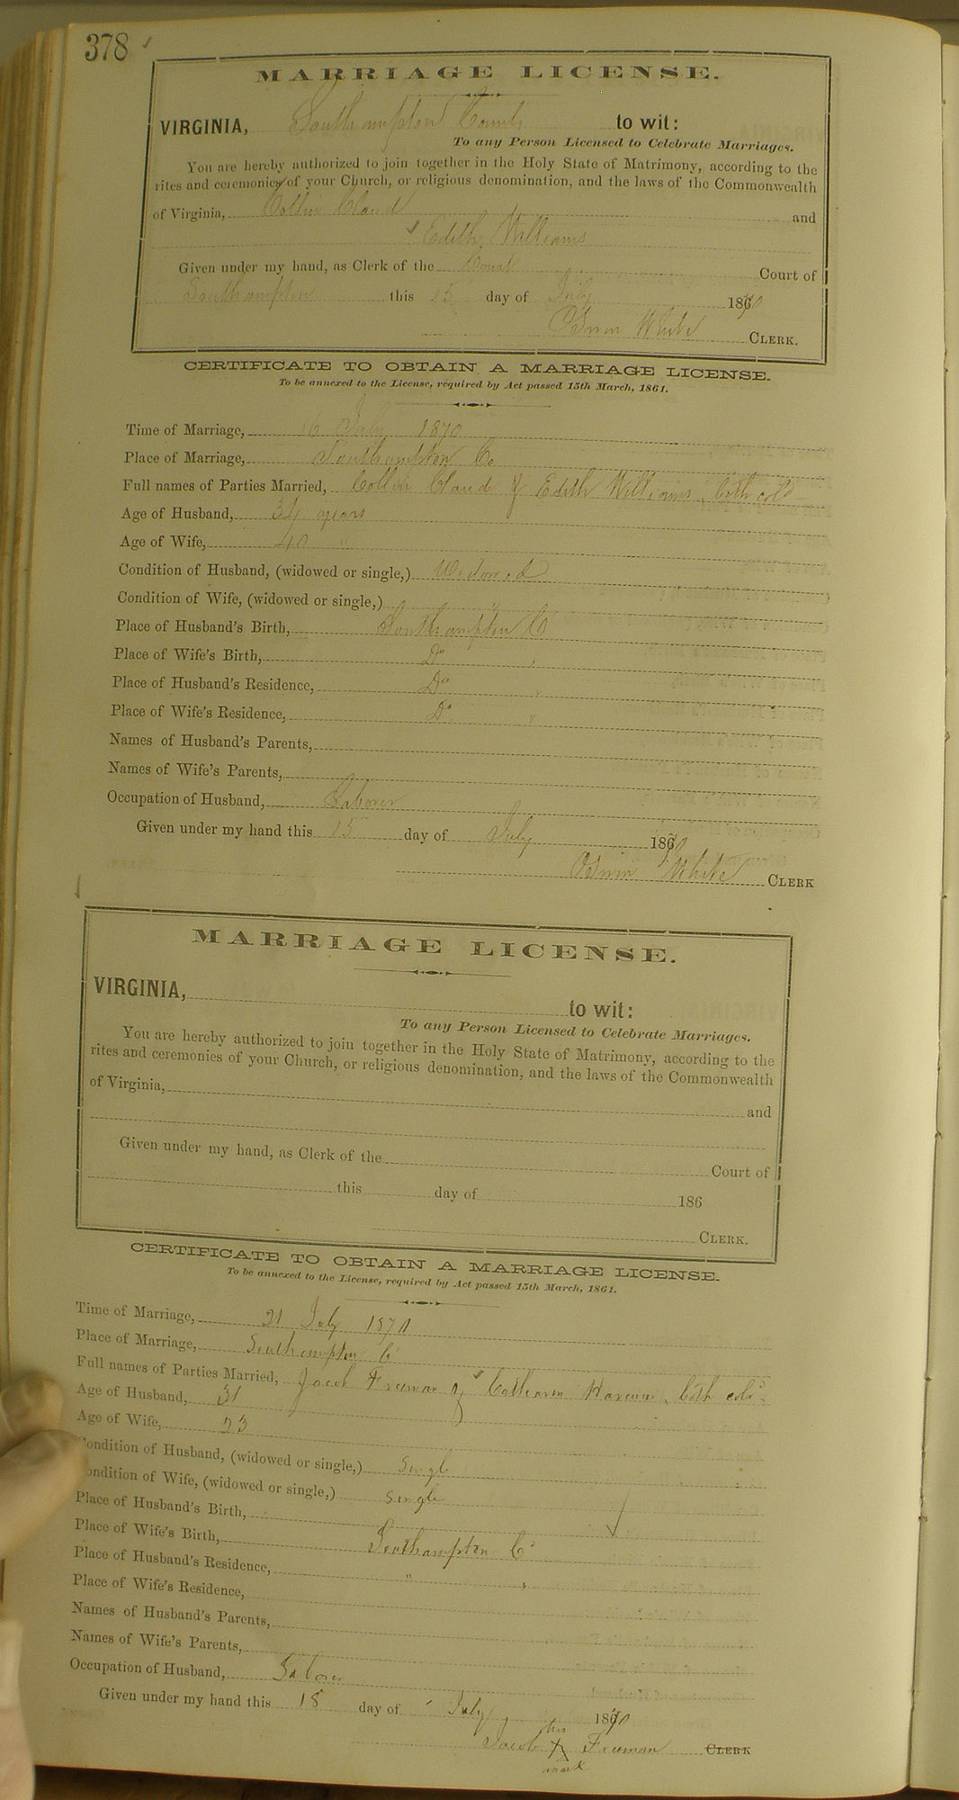 378
MARRIAGE LICENSE.
VIRGINIA, Southampton County to wit:
To any Person Licensed to Celebrate Marriages.
You are hereby authorized to join together in the Holy State of Matrimony, according to the
rites and ceremonies of your Church, or religious denomination, and the laws of the Commonwealth
of Virginia, Collin Claud and
Edith Williams
Given under my hand, as Clerk of the Court of
Southampton this 15 day of July 1870
White CLERK.
CERTIFICATE TO OBTAIN A MARRIAGE LICENSE.
To be annexed to the License, required by Act passed 15th March, 1861.
Time of Marriage, 16 July 1870
Place of Marriage, Southampton Co
Full names of Parties Married, Collin Claud & Edith Williams, both cold
Age of Husband, 34 years
Age of Wife, 40 "
Condition of Husband, (widowed or single,) Widowed
Condition of Wife, (widowed or single,) "
Place of Husband's Birth, Southampton Co
Place of Wife's Birth, Do "
Place of Husband's Residence, Do "
Place of Wife's Residence, Do "
Names of Husband's Parents,
Names of Wife's Parents,
Occupation of Husband, Laborer
Given under my hand this 15 day of July 1870
White CLERK
MARRIAGE LICENSE.
VIRGINIA, to wit:
To any Person Licensed to Celebrate Marriages.
You are hereby authorized to join together in the Holy State of Matrimony, according to the
rites and ceremonies of your Church, or religious denomination, and the laws of the Commonwealth
of Virginia, and
Given under my hand, as Clerk of the Court of
this day of 186
CLERK.
CERTIFICATE TO OBTAIN A MARRIAGE LICENSE.
To be annexed to the License, required by Act passed 15th March, 1861.
Time of Marriage, 21 July 1870
Place of Marriage, Southampton Co
Full names of Parties Married, Jacob Freeman & both cold
Age of Husband, 31
Age of Wife, 23
Condition of Husband, (widowed or single,) Single
Condition of Wife, (widowed or single,) Single
Place of Husband's Birth,
Place of Wife's Birth, Southampton Co
Place of Husband's Residence, " "
Place of Wife's Residence,
Names of Husband's Parents,
Names of Wife's Parents,
Occupation of Husband, Laborer
Given under my hand this 18 day of July 1870
his
Jacob X Freeman CLERK
mark